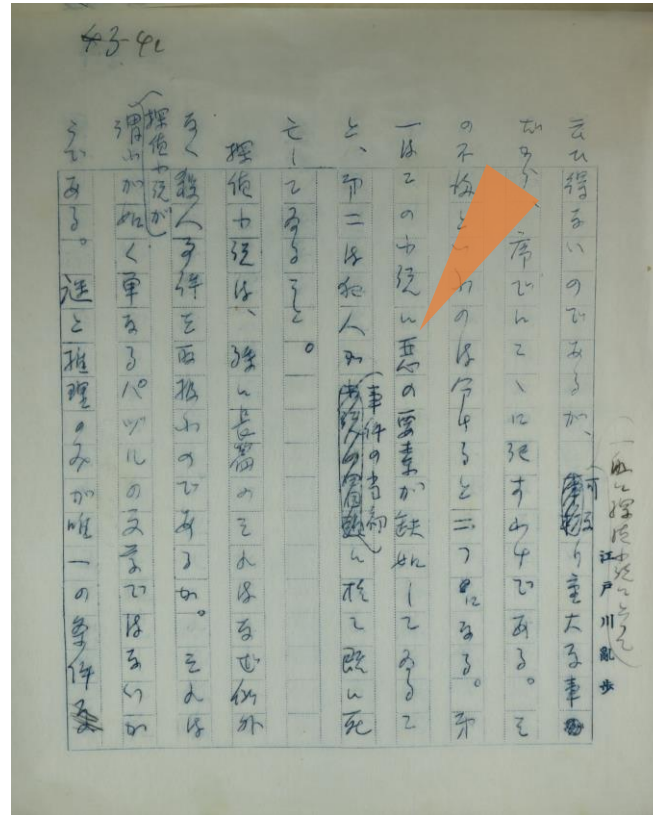 江戸川亂歩
云ひ得ないのであるが、可成り重大な事
だから、序でにこゝに記すわけである。そ
の不満といふのは分けると二つになる。第
一はこの小説に悪の要素が缺如してゐるこ
と、第二は犯人が事件の当初に於て既に死
亡してゐること。
探偵小説は、殊に長篇のそれはなぜ例外
なく殺人事件を取扱ふのであるか。それは
探偵小説が謂ふが如く単なるパヅルの文学ではないか
らである。謎と推理のみが唯一の条件